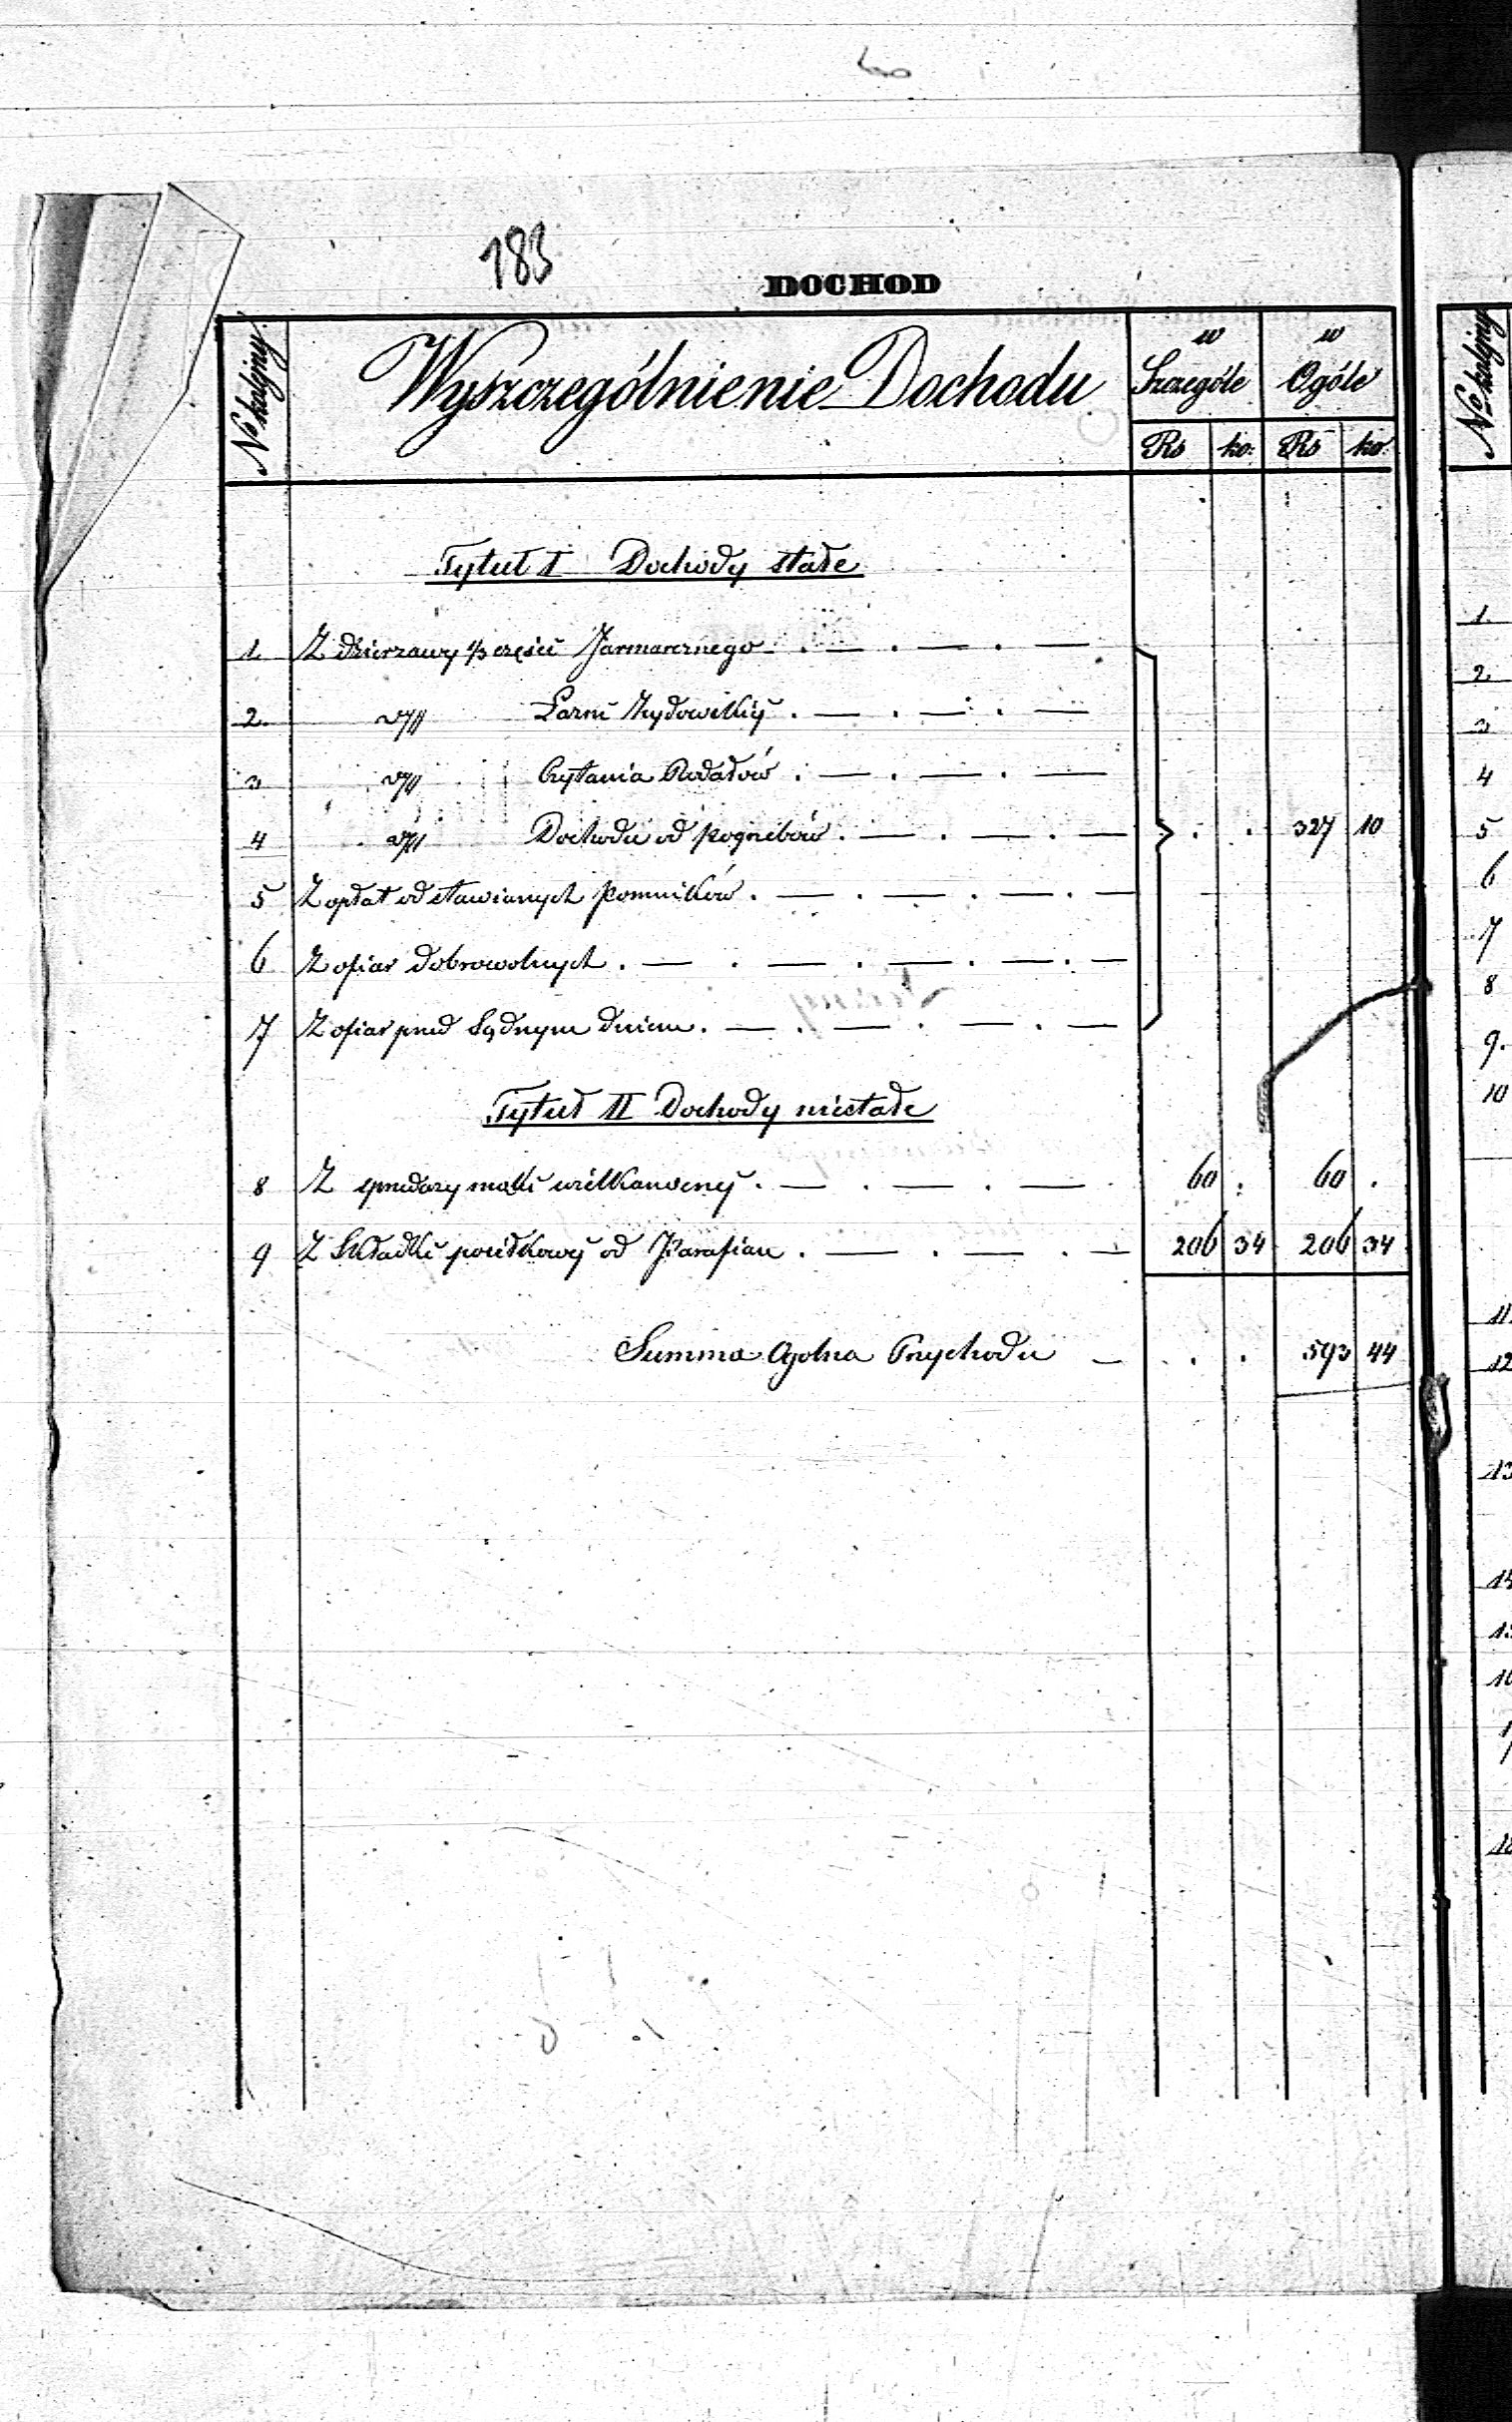 183
DOCHOD
No kolejny
Wyszczególnienie Dochodu
w Szczególe
w Ogóle
Rs ko: Rs ko:
Tytuł I Dochody stałe
1. Z dzierzawy ⅓ części Jarmarcznego
2. Łazni Żydowskiej
3 Czytania Rodałów
4 Dochodu od pogrzebów . . 327 10
5 Z opłat od stawianych pomników
6 Z ofiar dobrowolnych
7 Z ofiar przed Sądnym dniem
Tytuł II Dochody niestałe
8 Z sprzedazy mąki wielkanocnej 60 . 60 .
9 Z Składki posiłkowej od Parafian 206 34 206 34
Summa Ogolna Przychodu . . 593 44
No kolejny
1.
2.
3
4
5
6
7
8
9.
10
11
12
13
14